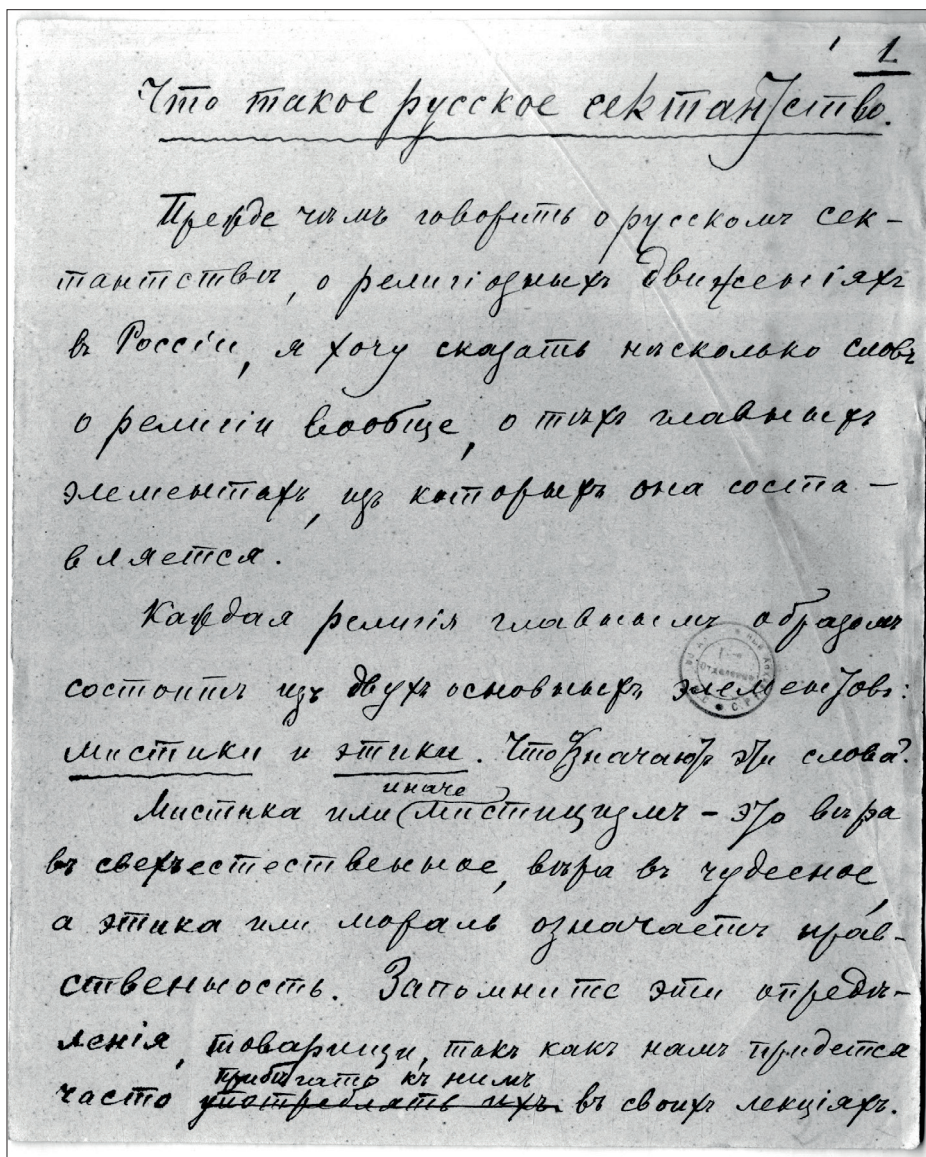 1
Что такое русское сектантство.
Прежде чѣмъ говорить о русскомъ сек-
тантствѣ, о религіозныхъ движеніяхъ
въ Россіи, я хочу сказать нѣсколько словъ
о религіи вообще, о тѣхъ главныхъ
элементахъ, изъ которыхъ она соста-
вляется.
Каждая религія главнымъ образомъ
состоитъ изъ двухъ основныхъ элементовъ:
мистики и этики. Что значатъ эти слова?
иначе
Мистика или мистицизмъ - это вѣра
въ сверхъестественное, вѣра въ чудесное,
а этика или мораль означаетъ нрав-
ственность. Запомните эти опредѣ-
ленія, товарищи, такъ какъ намъ придется
прибѣгать къ нимъ
часто употреблять ихъ въ своихъ лекціяхъ.